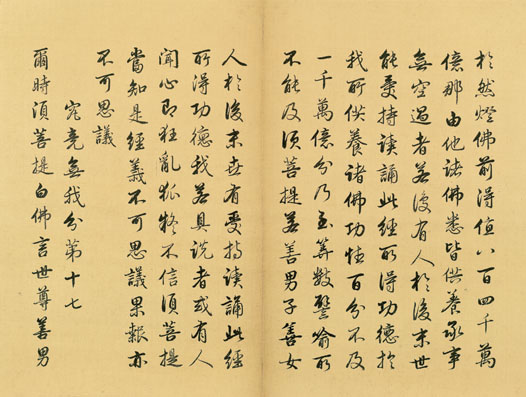 於然燈佛前得值八百四千萬
億那由他諸佛悉皆供養承事
無空過者若復有人於後末世
能受持讀誦此經所得功德於
我所供養諸佛功德百分不及
一千萬億分乃至算數譬喻所
不能及須菩提若善男子善女
人於後末世有受持讀誦此經
所得功德我若具說者或有人
聞心即狂亂狐疑不信須菩提
當知是經義不可思議果報亦
不可思議
究竟無我分第十七
爾時須菩提白佛言世尊善男